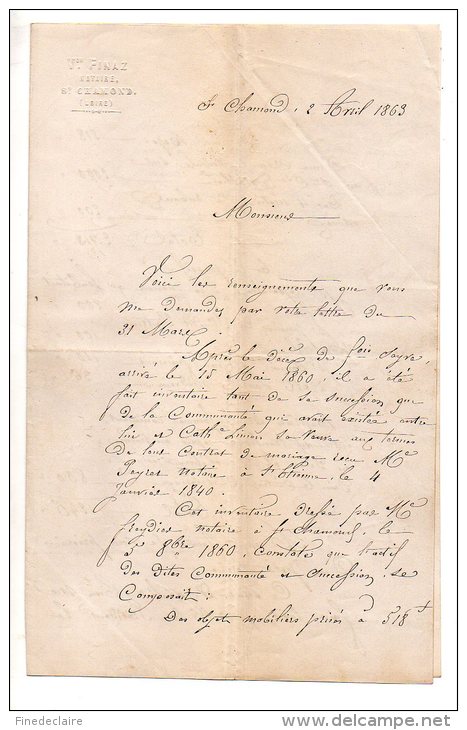 Vor FINAZ
NOTAIRE,
St CHAMOND.
(LOIRE)
St Chamond, 2 Avril 1863
Monsieur
Voici les renseignements que vous
me demandez par votre lettre du
31 Mars.
Après le décès de fois Seyve,
arrivé le 15 Mai 1860, il a été
fait inventaire tant de sa succession que
de la Communauté qui avait existée entre
lui et Cathe sa Veuve aux termes
de leur contrat de mariage reçu Me
Peyret notaire à St Etienne, le 4
Janvier 1840.
Cet inventaire dressé par Me
notaire à St Chamond, le
8bre 1860, constate que l'actif
des dites Communauté et succession, se
Composait :
Des objets mobiliers prisés à 518 f
Finedeclaire
www.delcampe.net